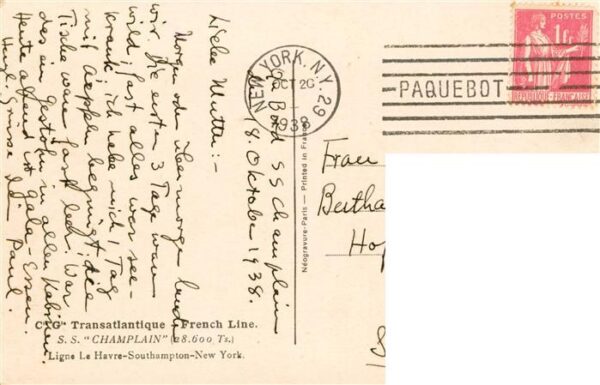 Bord SS Champlain
18. Oktober 1938.
Liebe Mutter:-
Morgen oder übermorgen landen
wir. Die ersten 3 Tage waren
wild fast alles war see-
krank, ich habe mich 1 Tag
mit Aepfeln begnügt, die
Tische waren fast leer. War
das ein Gestöhn in allen Kabinen.
Heute abend ist Gala-Essen.
Herzl. Grüsse Paul.
NEW YORK, N.Y. 29
OCT
1938
PAQUEBOT
POSTES
REPUBLIQUE-FRANÇAISE
Frau
Bertha
Néogravure-Paris — Printed in France
Cie Gle Transatlantique - French Line.
S. S. "CHAMPLAIN" (28.600 Ts.)
Ligne Le Havre-Southampton-New York.